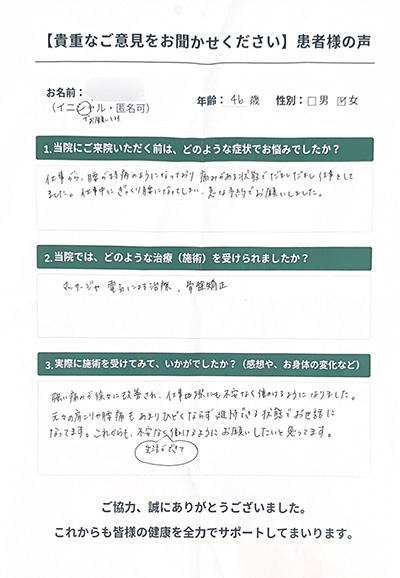 【貴重なご意見をお聞かせください】患者様の声
お名前：
（イニシャル・匿名可）
でお願いします
年齢： 46 歳 性別：□男 ☑女
1.当院にご来院いただく前は、どのような症状でお悩みでしたか？
仕事がら、腰が持病のようになっており 痛みがある状態でだましだまし仕事をして
ました。仕事中にぎっくり腰になってしまい、急な予約でお願いしました。
2.当院では、どのような治療（施術）を受けられましたか？
マッサージや 電気による治療、骨盤矯正
3.実際に施術を受けてみて、いかがでしたか？（感想や、お身体の変化など）
強い痛みが徐々に改善され、仕事復帰にも不安なく働けるようになりました。
元々の肩こりや腰痛も あまりひどくならず維持できる状態でお世話に
なってます。これからも、不安なく働けるようにお願いしたいと思ってます。
生活ができて
ご協力、誠にありがとうございました。
これからも皆様の健康を全力でサポートしてまいります。